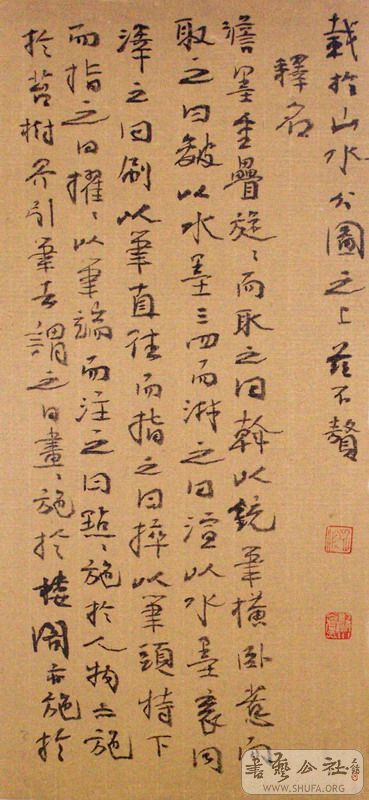 載於山水分圖之上茲不贅
釋名
澹墨重疊旋〻而取之曰斡以銳筆橫臥惹而
取之曰皴以水墨三四而淋之曰渲以水墨袞同
澤之曰刷以筆直往而指之曰捽以筆頭特下
而指之曰擢〻以筆端而注之曰點〻施於人物亦施
於苔樹界引筆去謂之曰畫〻施於樓閣亦施於
書藝公社
WWW.SHUFA.ORG